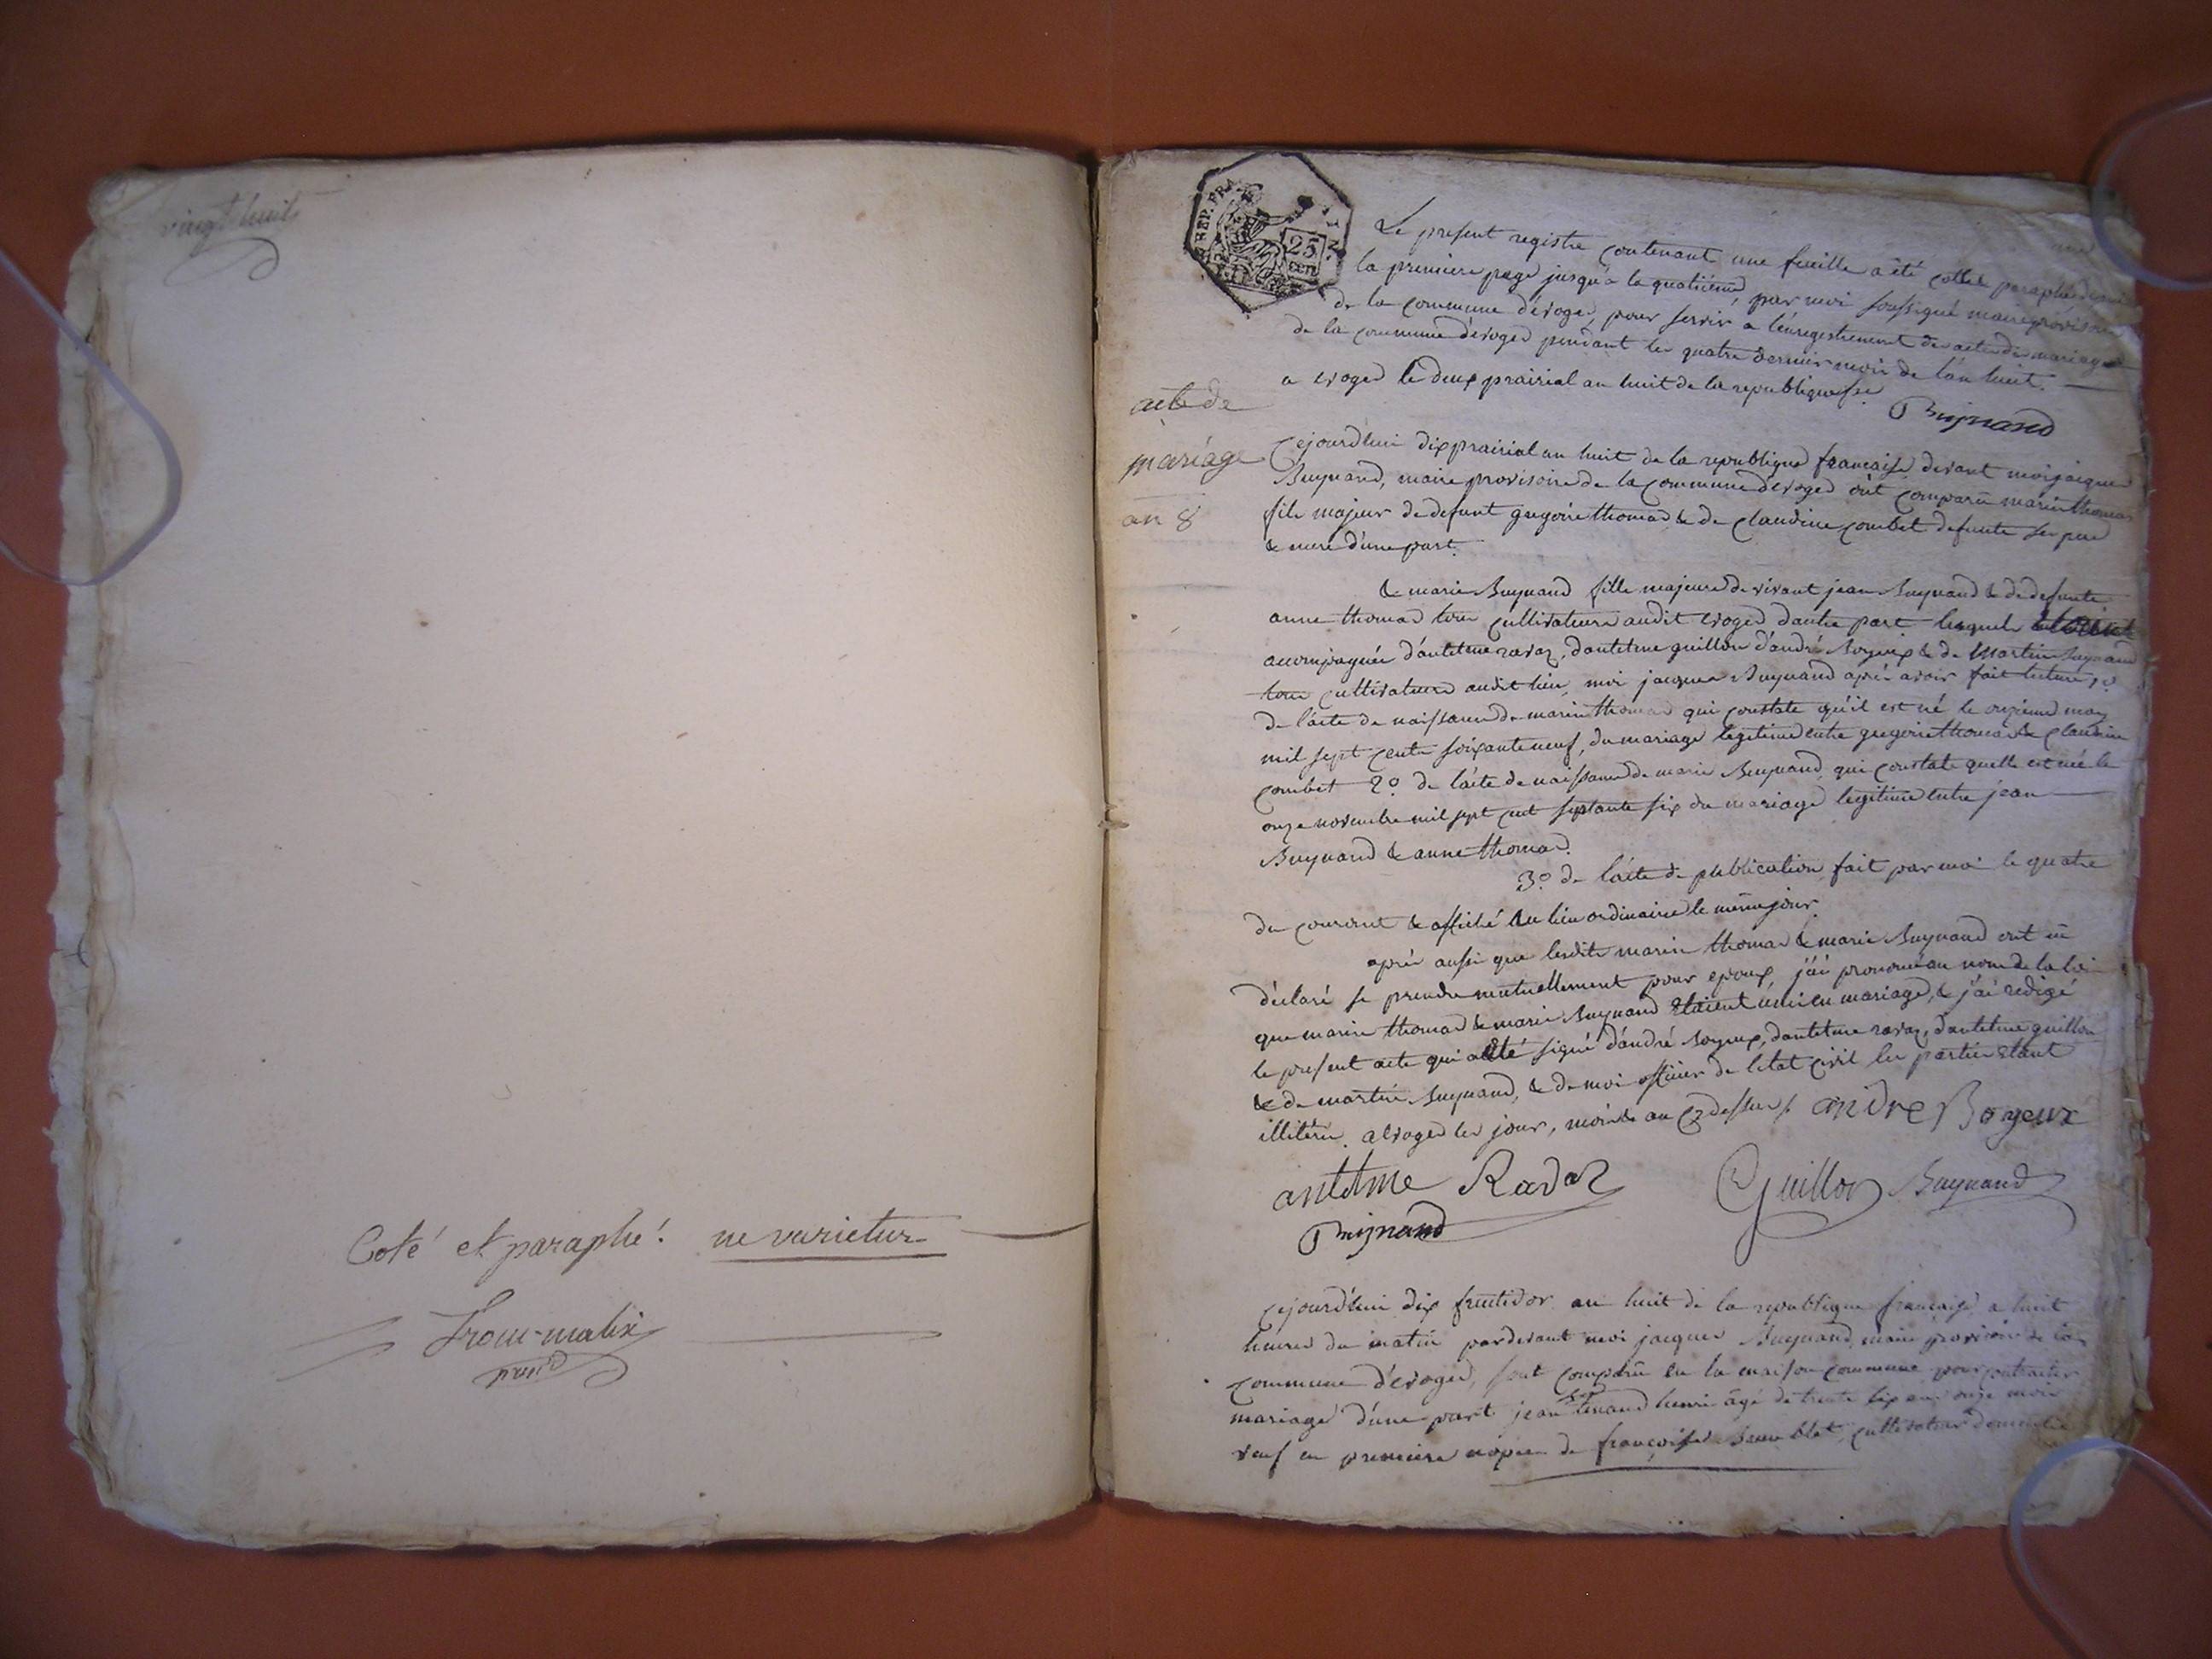 vingt huit
Coté et paraphé. ne varietur
REP. FRA
25
cen
Le present registre contenant une feuille a été cotté paraphé
la premiere page jusqu'a la quatrième, par moi soussigné maire provisoire
de la commune d'evoges, pour servir a l'enregistrement des actes de mariages
de la commune d'evoges pendant les quatre derniers mois de l'an huit.
a evoges le deux prairial an huit de la republique
Buynand
acte de
mariage
an 8
Cejourdhui dix prairial an huit de la republique francaise devant moi jacques
Buynand, maire provisoire de la commune d'evoges ont comparu marin thomas
fils majeur de defunt gregoire thomas & de claudine combet defunte ses pere
& mere d'une part.
& marie Buynand fille majeure de vivant jean Buynand & de defunte
anne thomas tous cultivateurs audit evoges d'autre part lesquels
accompagnés d'antelme ravaz, d'antelme guillon d'andré Boyeux & de Martin Buynand
tous cultivateurs audit lieu, moi jacques Buynand après avoir fait lecture, 1º
de l'acte de naissance de marin thomas qui constate qu'il est né le onzieme may
mil sept cents soixante neuf, du mariage légitime entre gregoire thomas & claudine
combet 2º de l'acte de naissance de marie Buynand qui constate quelle est née le
onze novembre mil sept cent septante six du mariage legitime entre jean
Buynand & anne thomas.
3º de l'acte de publication fait par moi le quatre
du courant & affiché au lieu ordinaire le même jour.
après aussi que lesdits marin thomas & marie Buynand ont eu
déclaré se prendre mutuellement pour epoux, j'ai prononcé au nom de la loi
que marin thomas & marie Buynand étaient unis en mariage, & j'ai redigé
le present acte qui a été signé d'andré Boyeux, d'antelme ravaz, d'antelme guillon
& de martin Buynand, & de moi officier de l'etat civil les parties étant
illitérés. a evoges les jour, mois & an cy dessus. andre Boyeux
antelme Ravaz Guillon Buynand
Buynand
cejourd'hui dix fructidor an huit de la republique française a huit
heures du matin pardevant moi jacques Buynand, maire provisoire de la
commune d'evoges, sont comparu en la maison commune pour contracter
mariage d'une part jean henri âgé de trente six ans onze mois
veuf en premiere nopces de françoise cultivateur